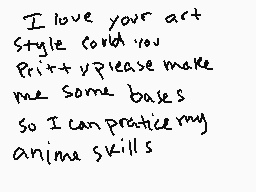 I love your art
style could you
Pritt y please make
me some bases
so I can pratice my
anime skills